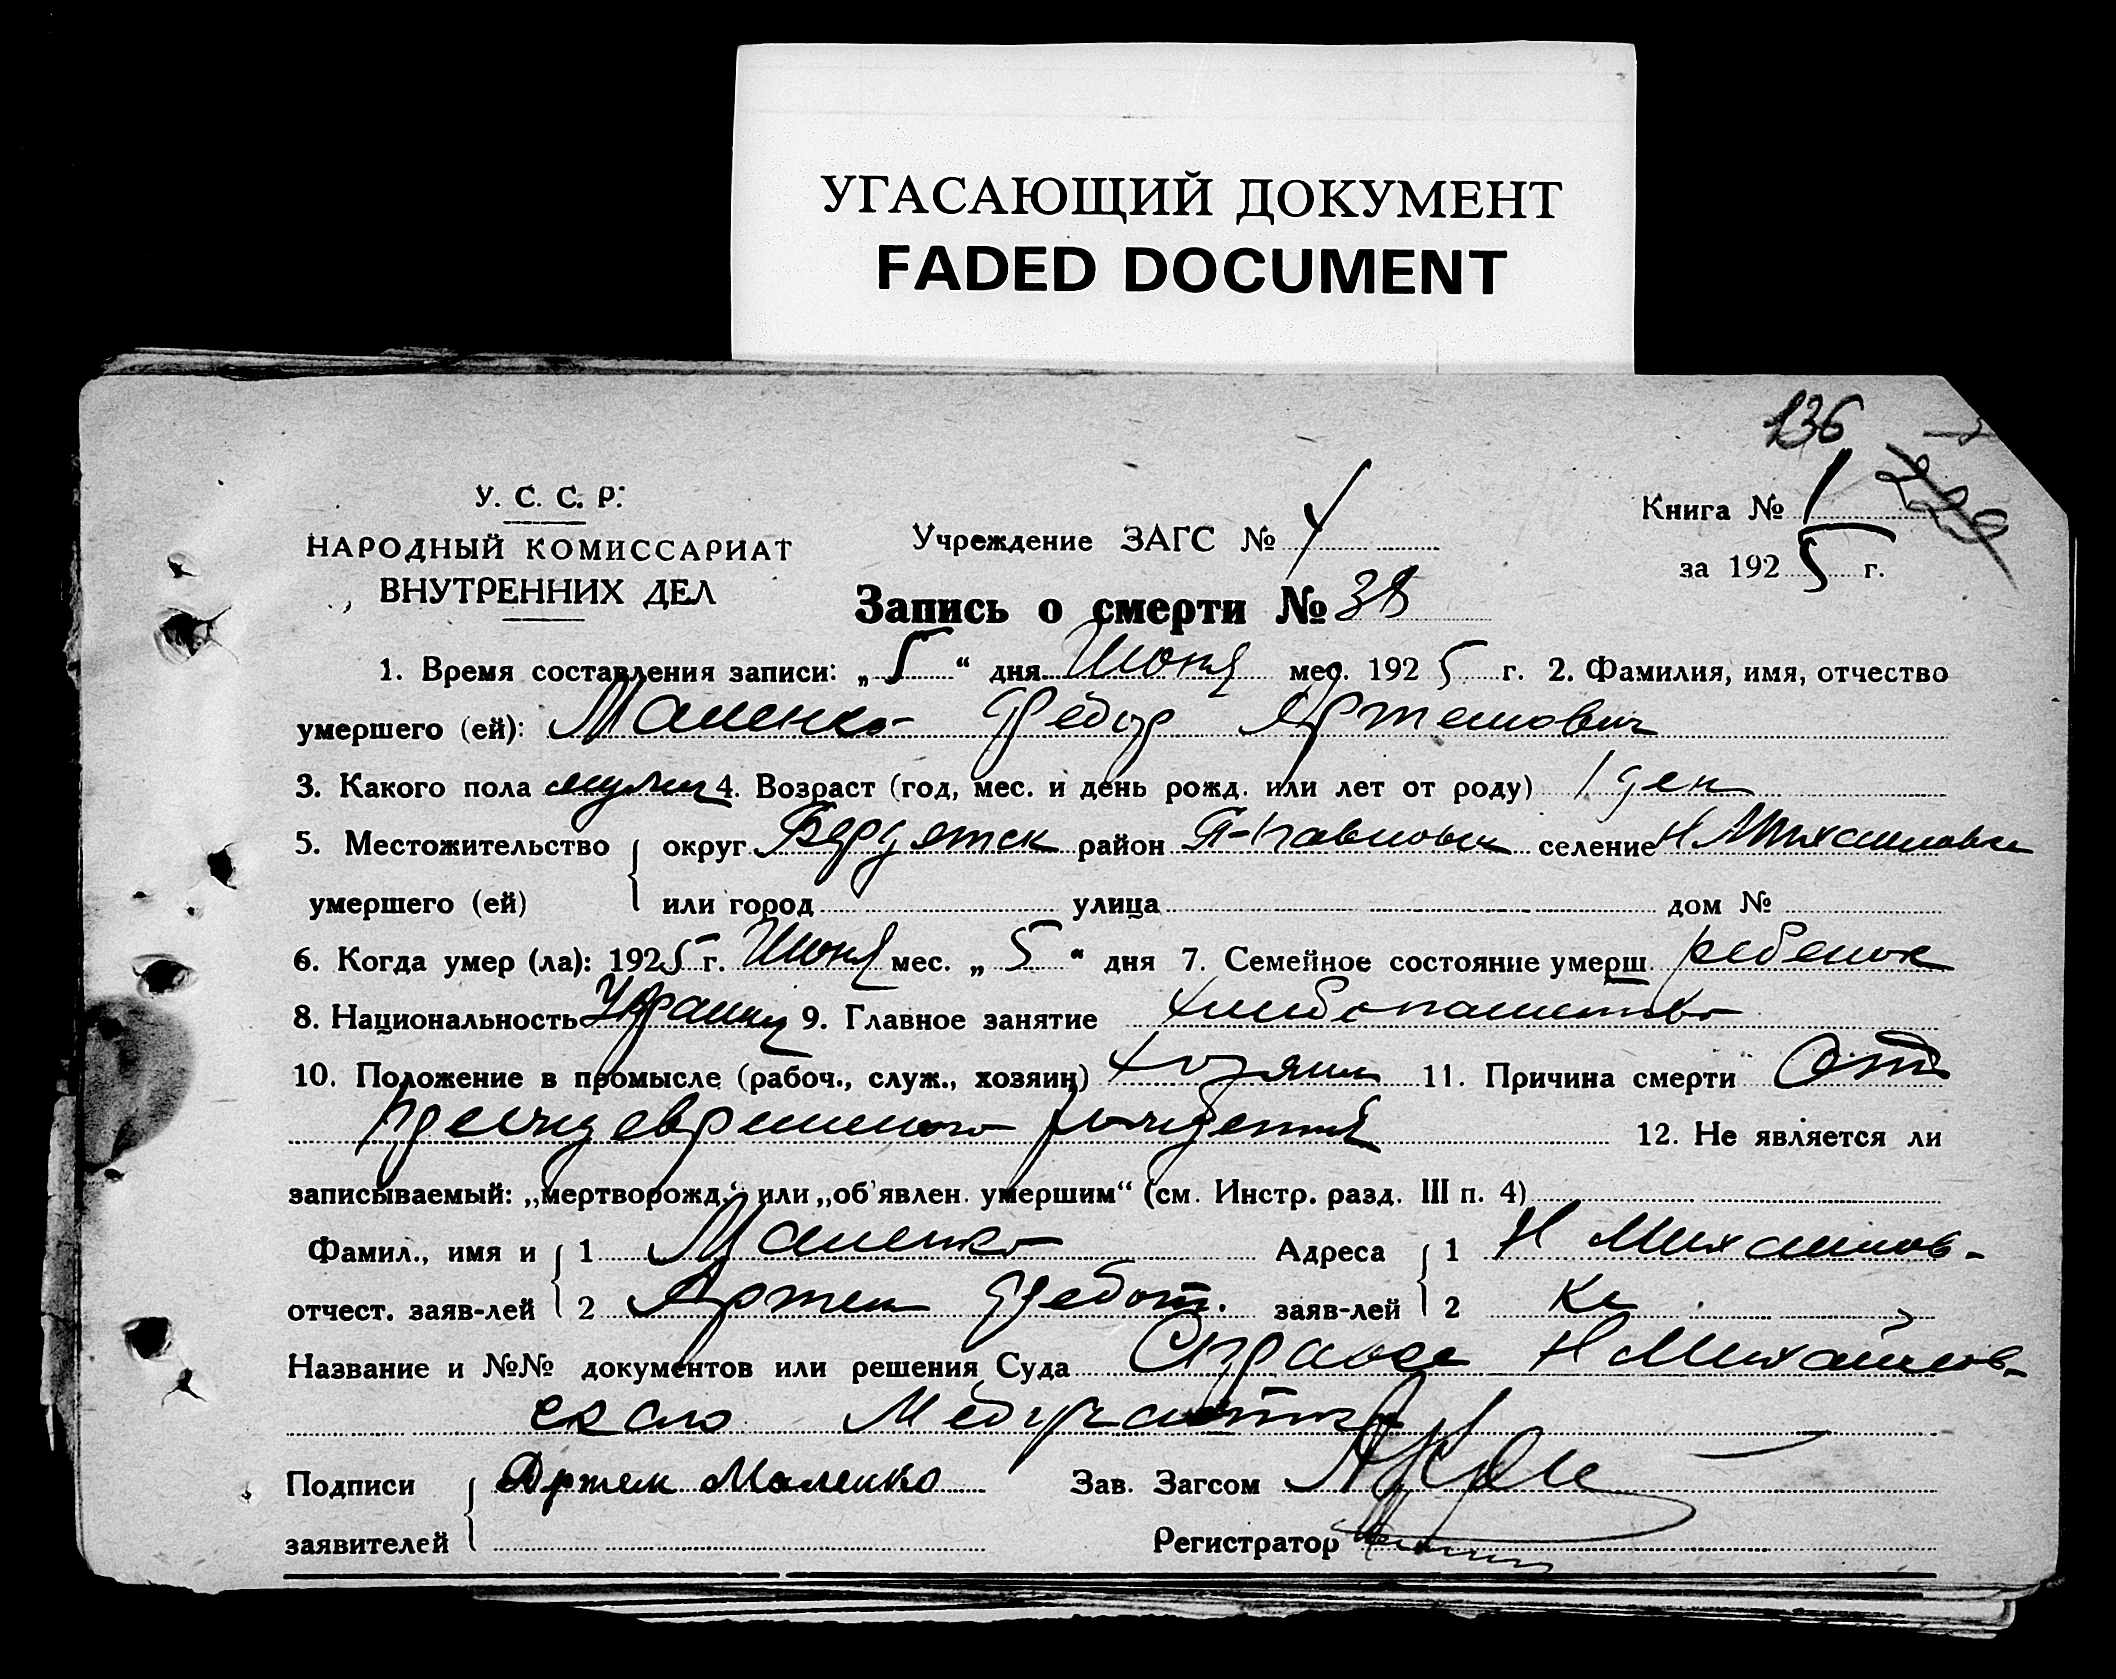 УГАСАЮЩИЙ ДОКУМЕНТ
FADED DOCUMENT
136
У. С. С. Р.
НАРОДНЫЙ КОМИССАРИАТ
ВНУТРЕННИХ ДЕЛ
Учреждение ЗАГС №
Книга № 1
за 1925 г.
Запись о смерти № 38
1. Время составления записи: „ 5 “ дня Июня мес. 1925 г. 2. Фамилия, имя, отчество
умершего (ей): Маленко Федор Артемович
3. Какого пола мужск 4. Возраст (год, мес. и день рожд. или лет от роду) 1 ден
5. Местожительство округ Бердянск район селение Н Михайловка
умершего (ей) или город улица дом №
6. Когда умер (ла): 1925 г. Июня мес. „ 5 “ дня 7. Семейное состояние умерш. ребенок
8. Национальность 9. Главное занятие хлебопашество
10. Положение в промысле (рабоч., служ., хозяин) хозяин 11. Причина смерти От
преждевременного рождения 12. Не является ли
записываемый: „мертворожд.“ или „об'явлен. умершим“ (см. Инстр. разд. III п. 4)
Фамил., имя и 1 Маленко Адреса 1 Н Михайлов-
отчест. заяв-лей 2 Артем Федот. заяв-лей 2 ка
Название и №№ документов или решения Суда Справка Н Михайлов-
ского Медучастка
Подписи Артем Маленко Зав. Загсом
заявителей Регистратор